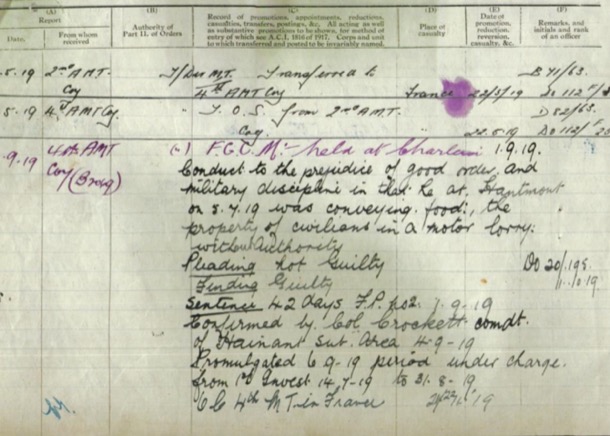 (A) (B) (C) (D) (E) (F)
Report
Date. From whom received
Authority of Part II. of Orders
Record of promotions, appointments, reductions, casualties, transfers, postings, &c. All acting as well as substantive promotions to be shown, for method of entry of which see A.C.I. 1816 of 1917. Corps and unit to which transferred and posted to be invariably named.
Place of casualty
Date of promotion, reduction, reversion, casualty, &c.
Remarks, and initials and rank of an officer
.5.19 2nd A.M.T. Coy M.T. Transferred to B 71/63.
4th AMT Coy France 22/5/19 Do 112
5.19 4th AMT Coy. T.O.S. from 2nd A.M.T. D 82/63.
Coy. " 22.5.19 Do 112/
.9.19 4th AMT F.G.C.M:- held at 1.9.19.
Coy
Conduct to the prejudice of good order, and
military discipline in that he at, Hautmont
on 8.7.19 was conveying. food, the
property of civilians in a motor lorry.
without Authority
Pleading not Guilty
Finding Guilty
Sentence 42 Days F.P. no2. 1-9-19
Confirmed by. Col Crockett. comdt.
of Hainant Sub. Area 4-9-19
Promulgated 6 9-19 period under charge.
from 1st Invest 14-7-19 to 31.8-19
4th MT in France